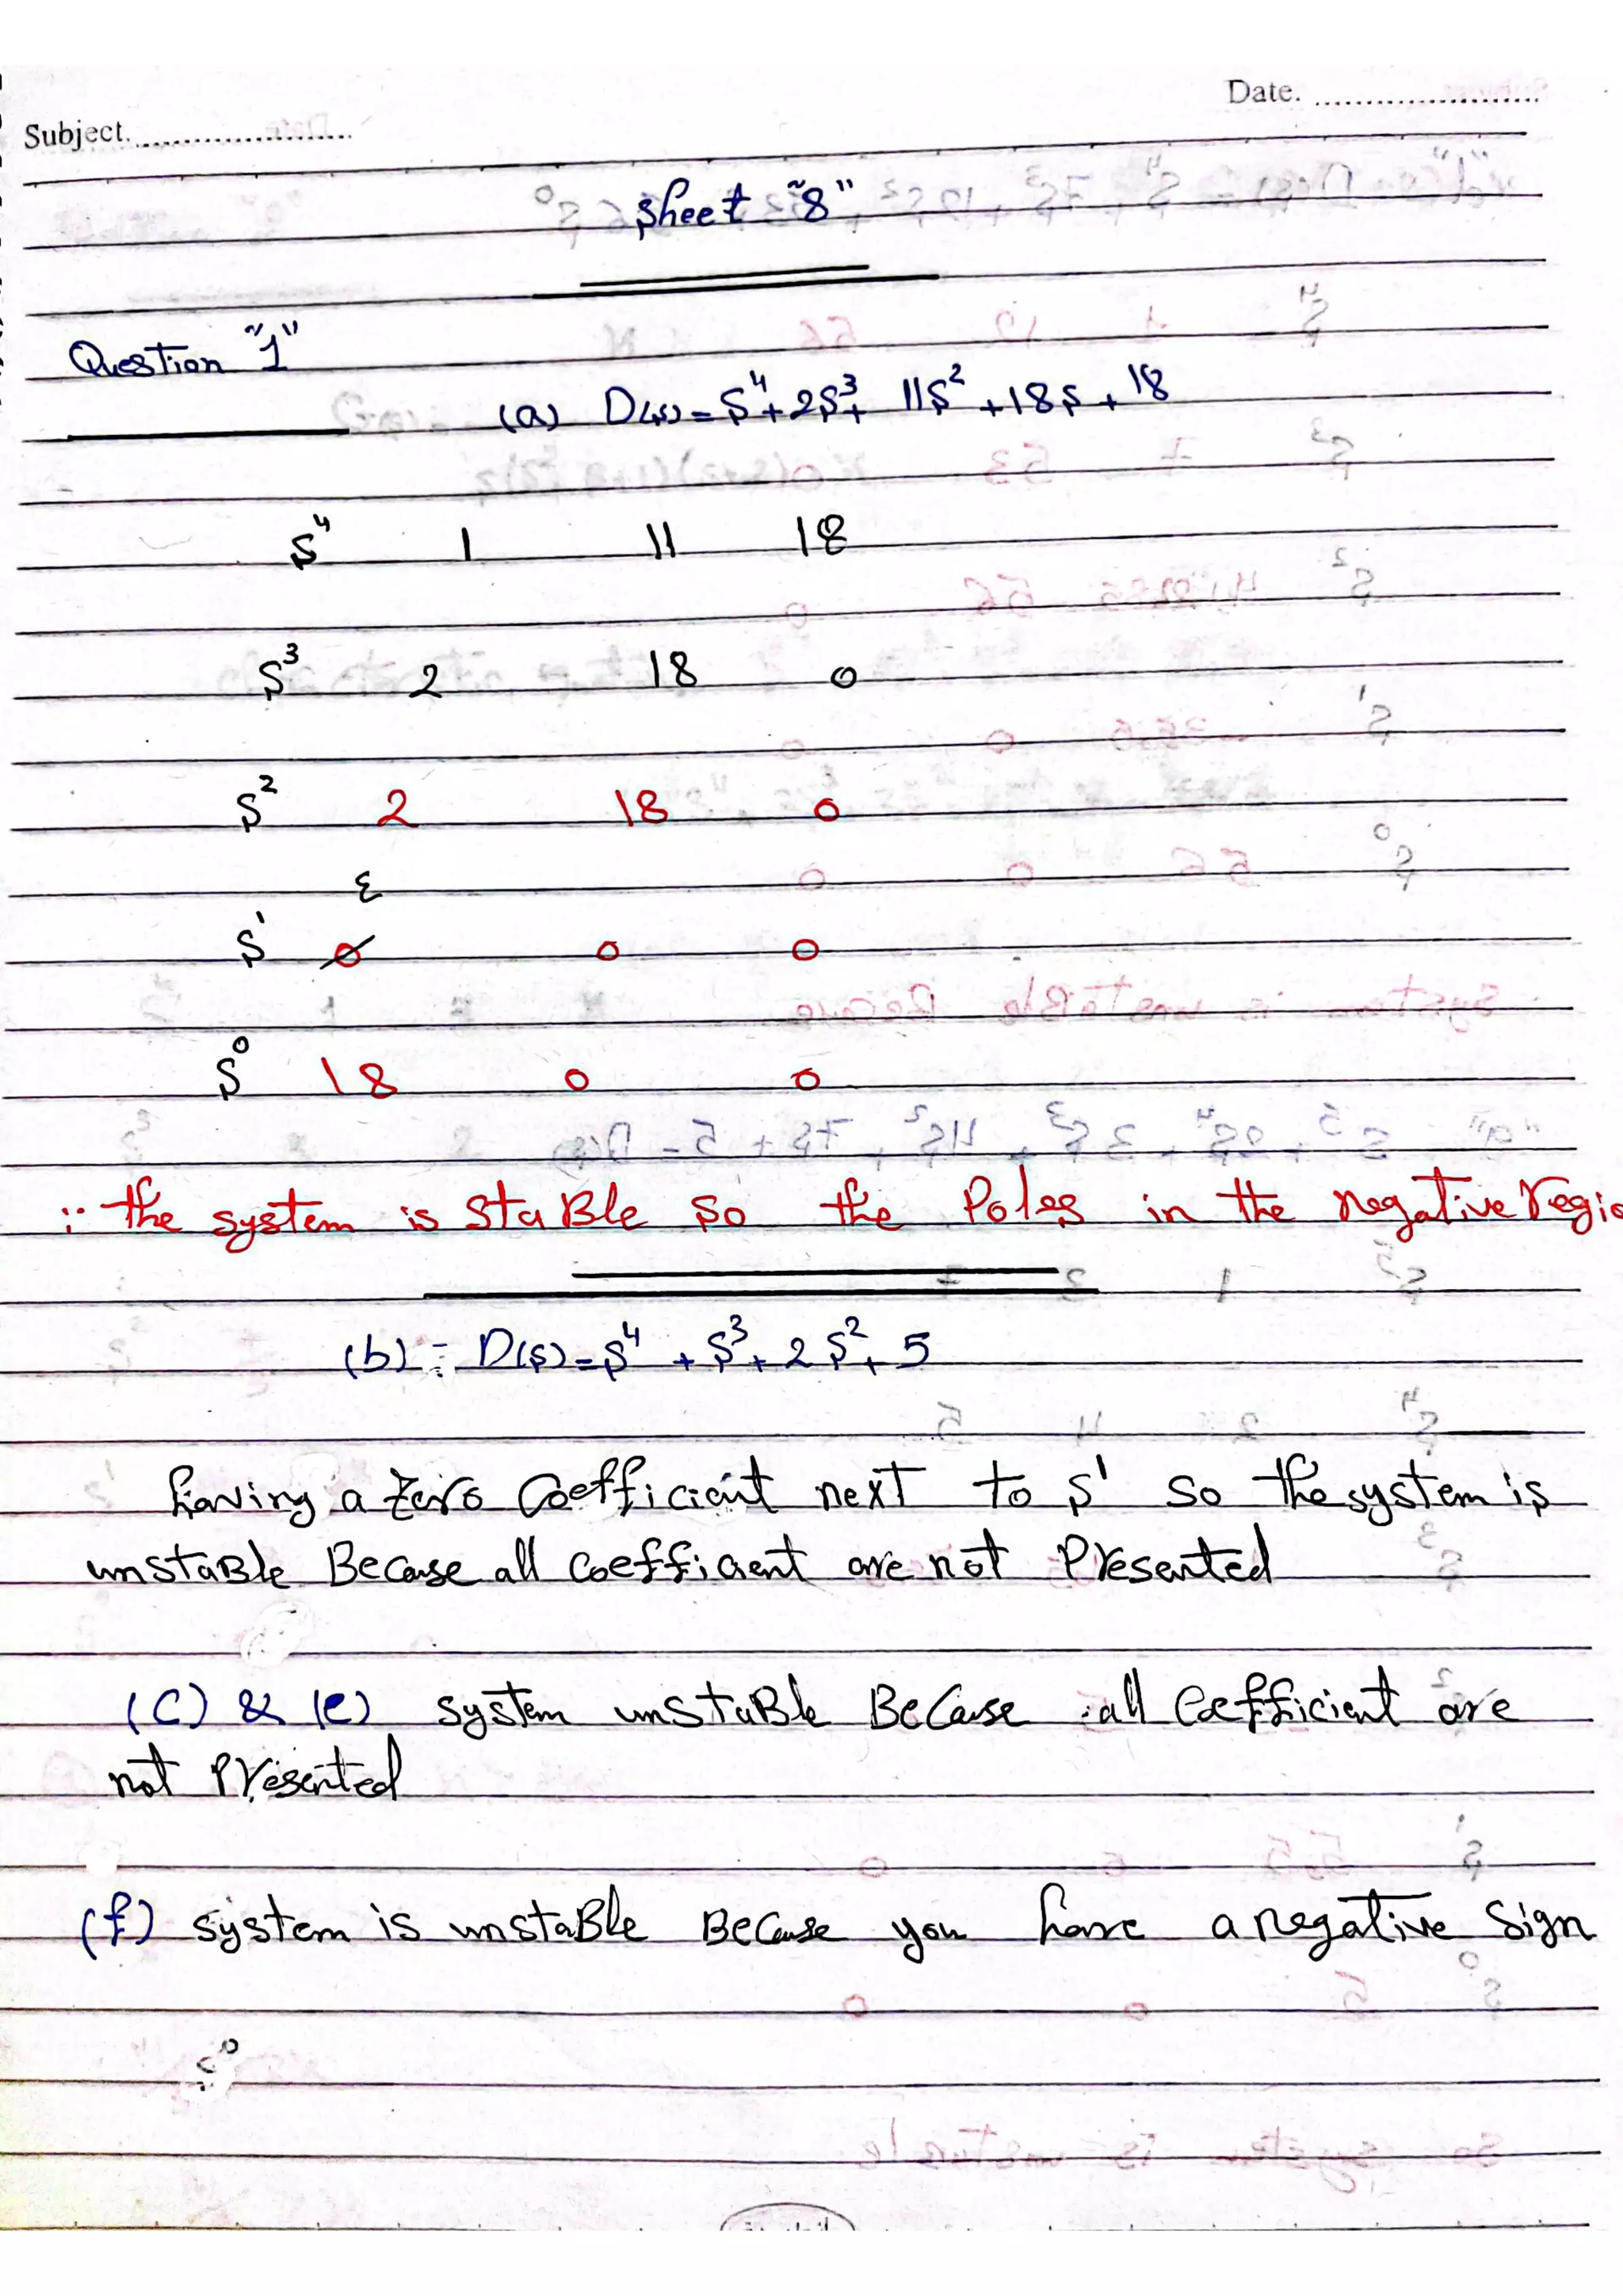 Date. ........................
Subject. ........................
Sheet "8"
Question "1"
(a) D(s) = S⁴ + 2S³ + 11S² + 18S + 18
S⁴ 1 11 18
S³ 2 18 0
S² 2 18 0
ε
S¹ 0 0 0
S⁰ 18 0 0
∴ the system is stable so the Poles in the negative regio
(b) :- D(s) = S⁴ + S³ + 2S² + 5
having a zero Coefficient next to S¹ so the system is
unstable Because all coefficient are not Presented
(C) & (e) system unstable Because all Coefficient are
not Presented
(f) system is unstable Because you have a negative Sign
S⁰